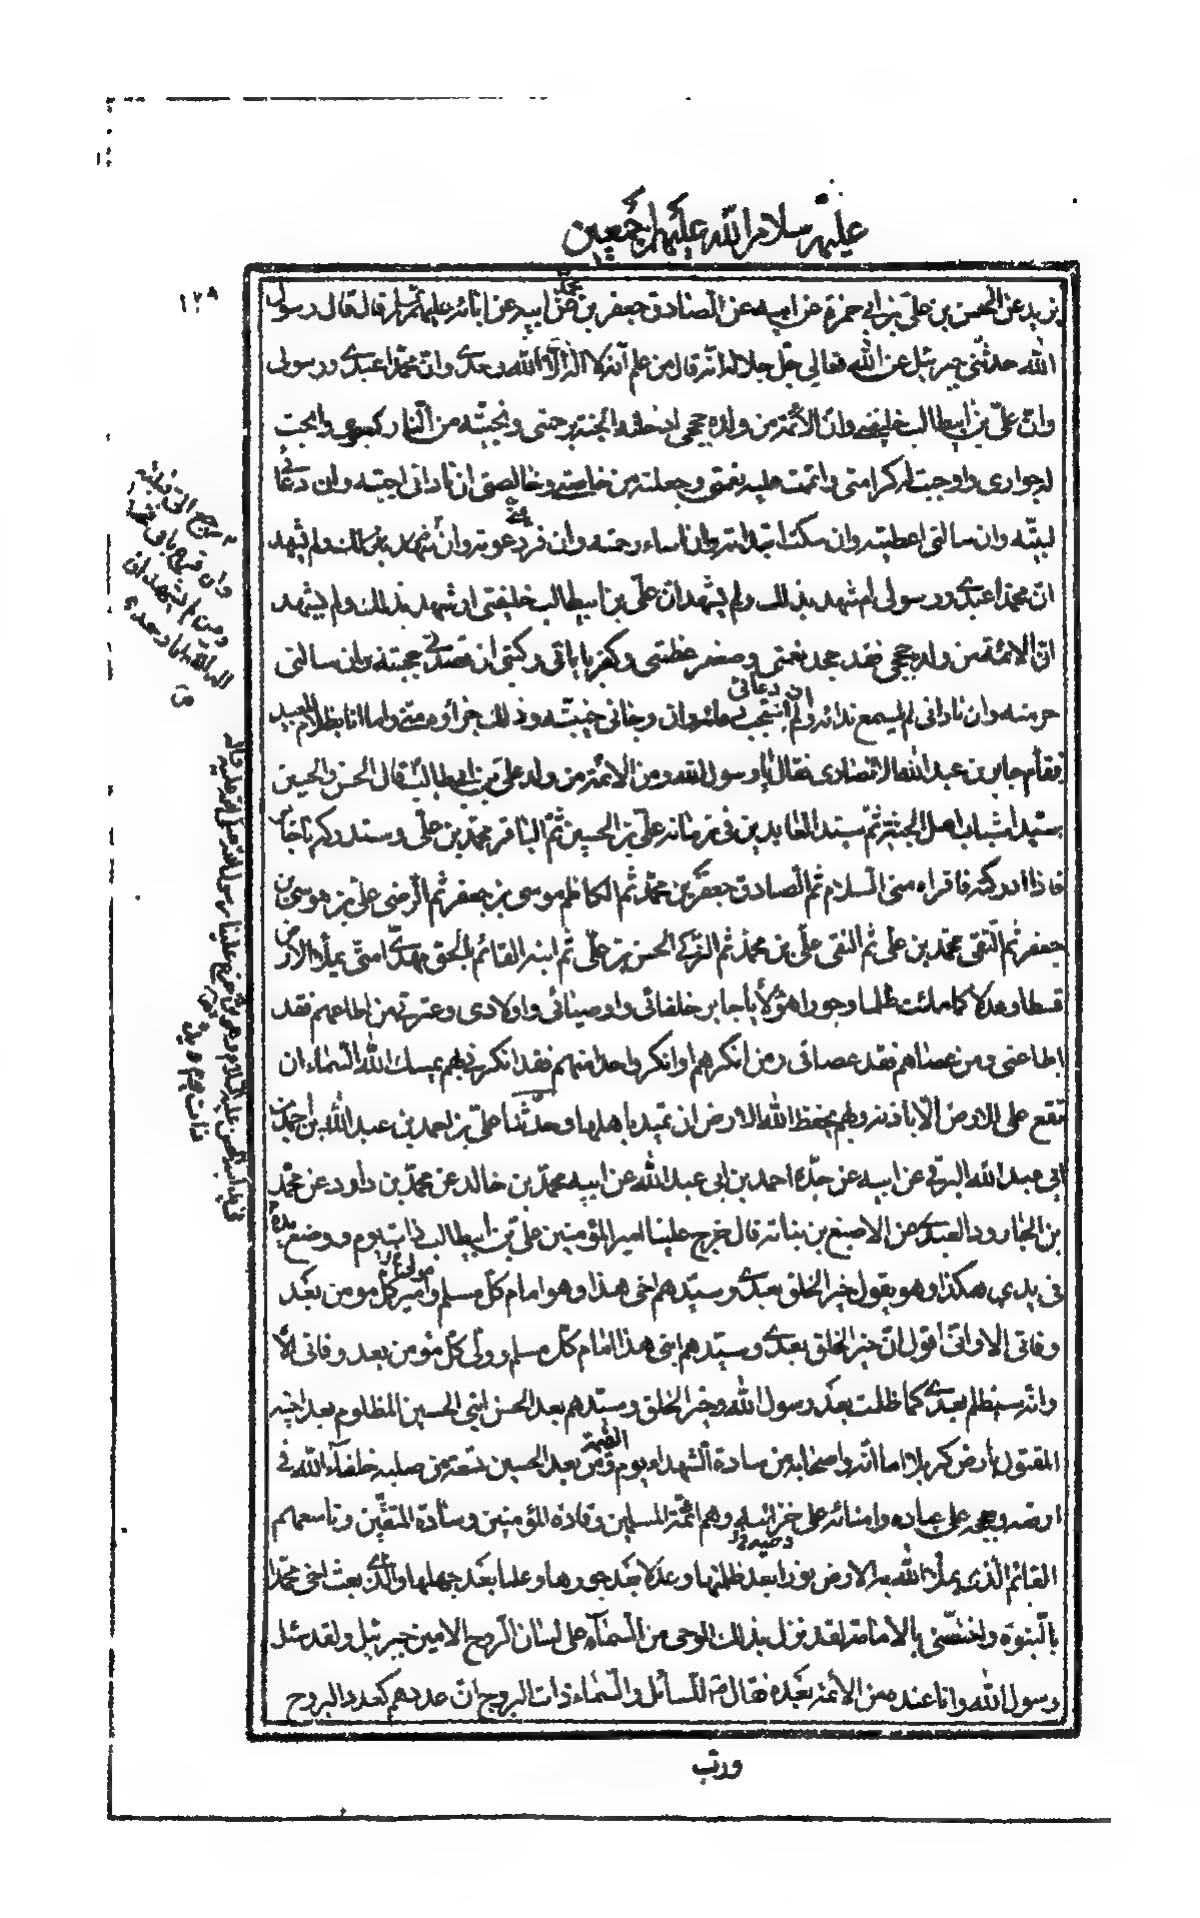 عليهم سلام الله عليهم اجمعين
١٢٩
يزيد عن الحسن بن علي بن ابي حمزة عن ابيه عن الصادق جعفر بن محمد عن ابيه عن ابائه عليهم السلم قال قال رسول
الله حدثني جبرئيل عن الله تعالى جل جلاله انه قال من علم انه لا اله الا الله وحدي وان محمدا عبدي ورسولي
وان علي بن ابيطالب خليفتي وان الائمة من ولده حججي ادخلته الجنة برحمتي ونجيته من النار كعفوي وابحت
له جواري واوجبت له كرامتي واتممت عليه نعمتي وجعلته من خاصتي وخالصتي ان ناداني اجبته وان دعاني
لبيته وان سالني اعطيته وان سكت ابتداته وان اساء رحمته وان فر دعوته وان لم يشهد بذلك ولم يشهد
ان محمدا عبدي ورسولي ام شهد بذلك ولم يشهد ان علي بن ابيطالب خليفتي او شهد بذلك ولم يشهد
ان الائمة من ولده حججي فقد جحد نعمتي وصغر عظمتي وكفر باياتي وكتبي ان قصدني حجبته وان سالني
حرمته وان ناداني لم اسمع ندائه وان دعاني لم استجب دعائه وان رجاني خيبته وذلك جزاؤه مني وما انا بظلام للعبيد
فقام جابر بن عبدالله الانصاري فقال يا رسول الله ومن الائمة من ولد علي بن ابي طالب قال الحسن والحسين
سيدا شباب اهل الجنة ثم سيد العابدين في زمانه علي بن الحسين ثم الباقر محمد بن علي وستدركه يا جابر
فاذا ادركته فاقراه مني السلام ثم الصادق جعفر بن محمد ثم الكاظم موسى بن جعفر ثم الرضي علي بن موسى بن
جعفر ثم التقي محمد بن علي ثم النقي علي بن محمد ثم الزكي الحسن بن علي ثم ابنه القائم بالحق مهدي امتي يملأ الارض
قسطا وعدلا كما ملئت ظلما وجورا هؤلأ يا جابر خلفائي واوصيائي واولادي وعترتي من اطاعهم فقد
اطاعني ومن عصاهم فقد عصاني ومن انكرهم او انكر واحدا منهم فقد انكرني بهم يمسك الله السماء ان
تقع على الارض الا باذنه وبهم يحفظ الله الارض ان تميد باهلها وحدثنا علي بن احمد بن عبد الله بن احمد بن
ابي عبد الله البرقي عن ابيه عن جده احمد بن ابي عبد الله عن ابيه محمد بن خالد عن محمد بن داود عن محمد
بن الجارود العبدي عن الاصبغ بن نباته قال خرج علينا امير المؤمنين علي بن ابيطالب ذات يوم ووضع يده
في يدي هكذا وهو يقول خير الخلق بعدي وسيدهم اخي هذا وهو امام كل مسلم وامير كل مومن بعد
وفاتي الا واني اقول ان خير الخلق بعدي وسيدهم ابني هذا امام كل مسلم وولي كل مؤمن بعد وفاتي الا
وانه سيظلم بعدي كما ظلمت بعد رسول الله وخير الخلق وسيدهم بعد الحسن ابني الحسين المظلوم بعد اخيه
المقتول بارض كربلا اما انه واصحابه من سادة الشهداء يوم القيمة ومن بعد الحسين تسعة من صلبه خلفآء الله في
ارضه وحججه على عباده وامنائه على خزائنه وهم ائمة المسلمين وقادة المؤمنين وسادة المتقين وتاسعهم
القائم الذي يملأ الله به الارض نورا بعد ظلمتها وعدلا بعد جورها وعلما بعد جهلها والذي بعث اخي محمدا
بالنبوة واختصني بالامامة لقد نزل بذلك الوحي من السمآء على لسان الروح الامين جبرئيل ولقد سئل
رسول الله وانا عنده من الائمة بعده فقال للسائل والسماء ذات البروج ان عددهم كعدد البروج
ورب